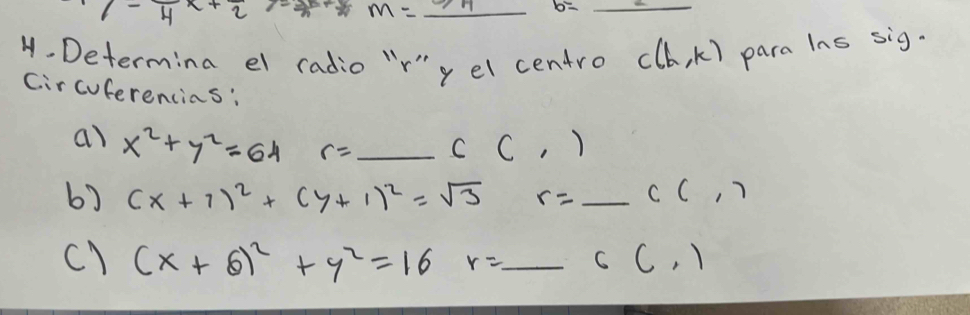 m = ____ b = ____
4.-Determina el radio "r" y el centro c(h,k) para las sig.
Circuferencias:
a) x²+y²=64 r=____ c ( , )
b) (x+1)²+(y+1)²=√3 r=__ c ( , )
c) (x+6)² +y²=16 r=___ c ( , )